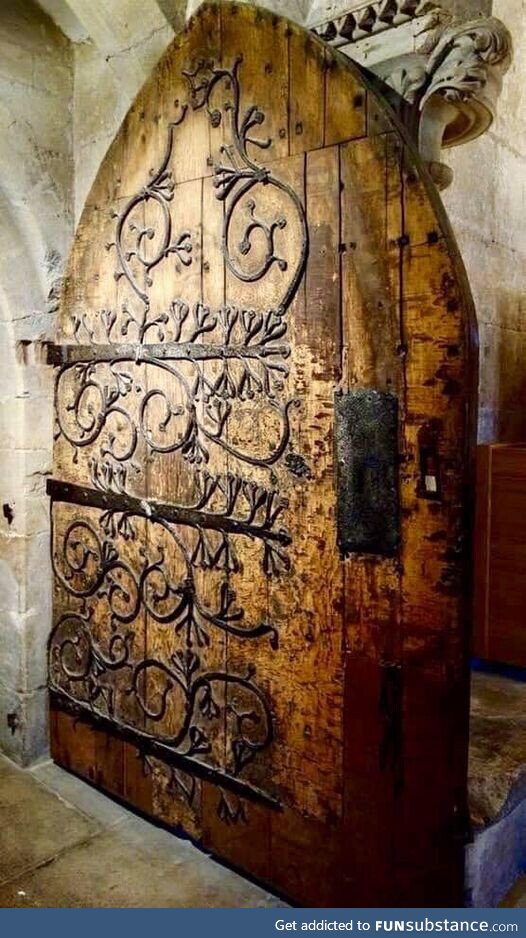 Get addicted to FUNsubstance.com